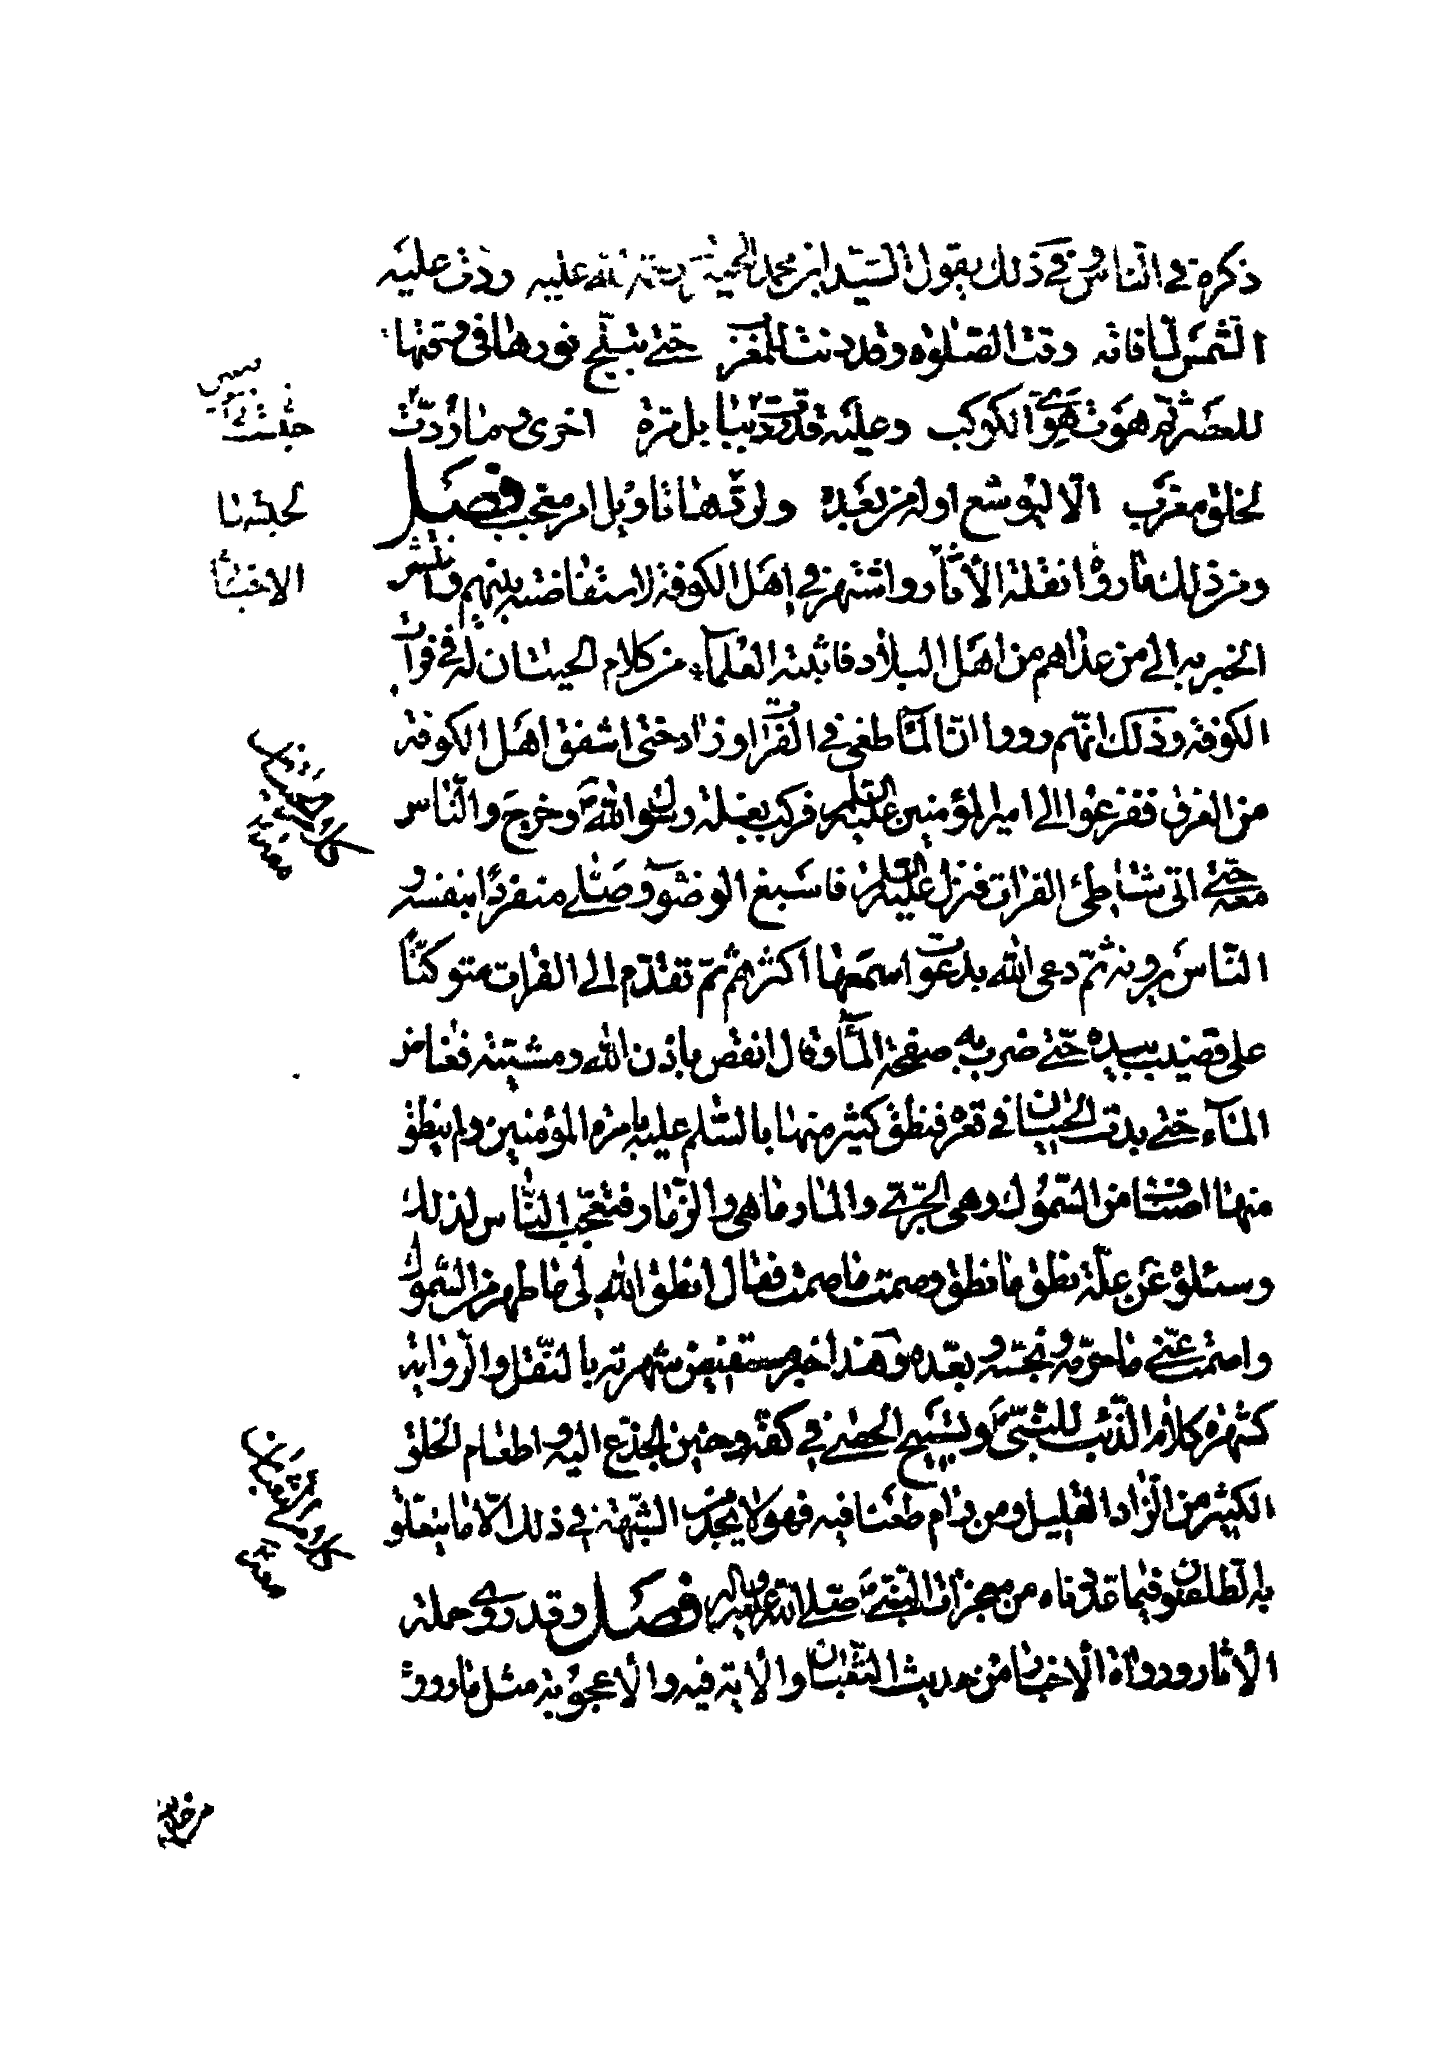 ذكره في الناس وفي ذلك يقول السيد ابن محمد الحميري رحمة الله عليه ردت عليه
الشمس لما فاته وقت الصلوة وقد دنت للمغرب حتى تبلج نورها في وقتها
للعصر ثم هوت هوي الكوكب وعليه قد ردت ببابل مرة اخرى وما ردت
لخلق مغرب الا ليوشع اوله من بعده ولردها تاويل امر معجب فصل
ومن ذلك ما رواه نقلة الآثار واشتهر في اهل الكوفة لاستفاضته بينهم وانتشر
الخبر به الى من عداهم من اهل البلاد فاثبته العلماء من كلام الحيتان له في فرات
الكوفة وذلك انهم رووا ان الماء طغى في الفرات وزاد حتى اشفق اهل الكوفة
من الغرق ففزعوا الى امير المؤمنين عليه السلم فركب بغلة رسول الله ص وخرج والناس
معه حتى اتى شاطئ الفرات فنزل عليه السلم فاسبغ الوضوء وصلى منفردا بنفسه و
الناس يرونه ثم دعى الله بدعوات سمعها اكثرهم ثم تقدم الى الفرات متوكئا
على قضيب بيده حتى ضرب به صفحة الماء وقال انقص باذن الله ومشيته فغاض
الماء حتى بدت الحيتان في قعره فنطق كثير منها بالسلم عليه بامرة المؤمنين ولم ينطق
منها اصناف من السموك وهي الجري والمار ماهي والزمار فتعجب الناس لذلك
وسئلوه عن علة نطق ما نطق وصمت ما صمت فقال انطق الله لي ما طهر من السموك
واصمت عني ما حرمه ونجسه وبعده وهذا خبر مستفيض شهرته بالنقل والرواية
كشهرة كلام الذئب للنبي ص وتسبيح الحصى في كفه وحنين الجذع اليه واطعام الخلق
الكثير من الزاد القليل ومن رام طعنا فيه فهو لا يجد من الشبهة في ذلك الا ما يتعلق
به الطاعنون فيما عددناه من معجزات النبي صلى الله عليه وآله فصل وقد روى حملة
الآثار ورواة الاخبار من حديث الثعبان والآية فيه والاعجوبة مثل ما رووه
الاخبار